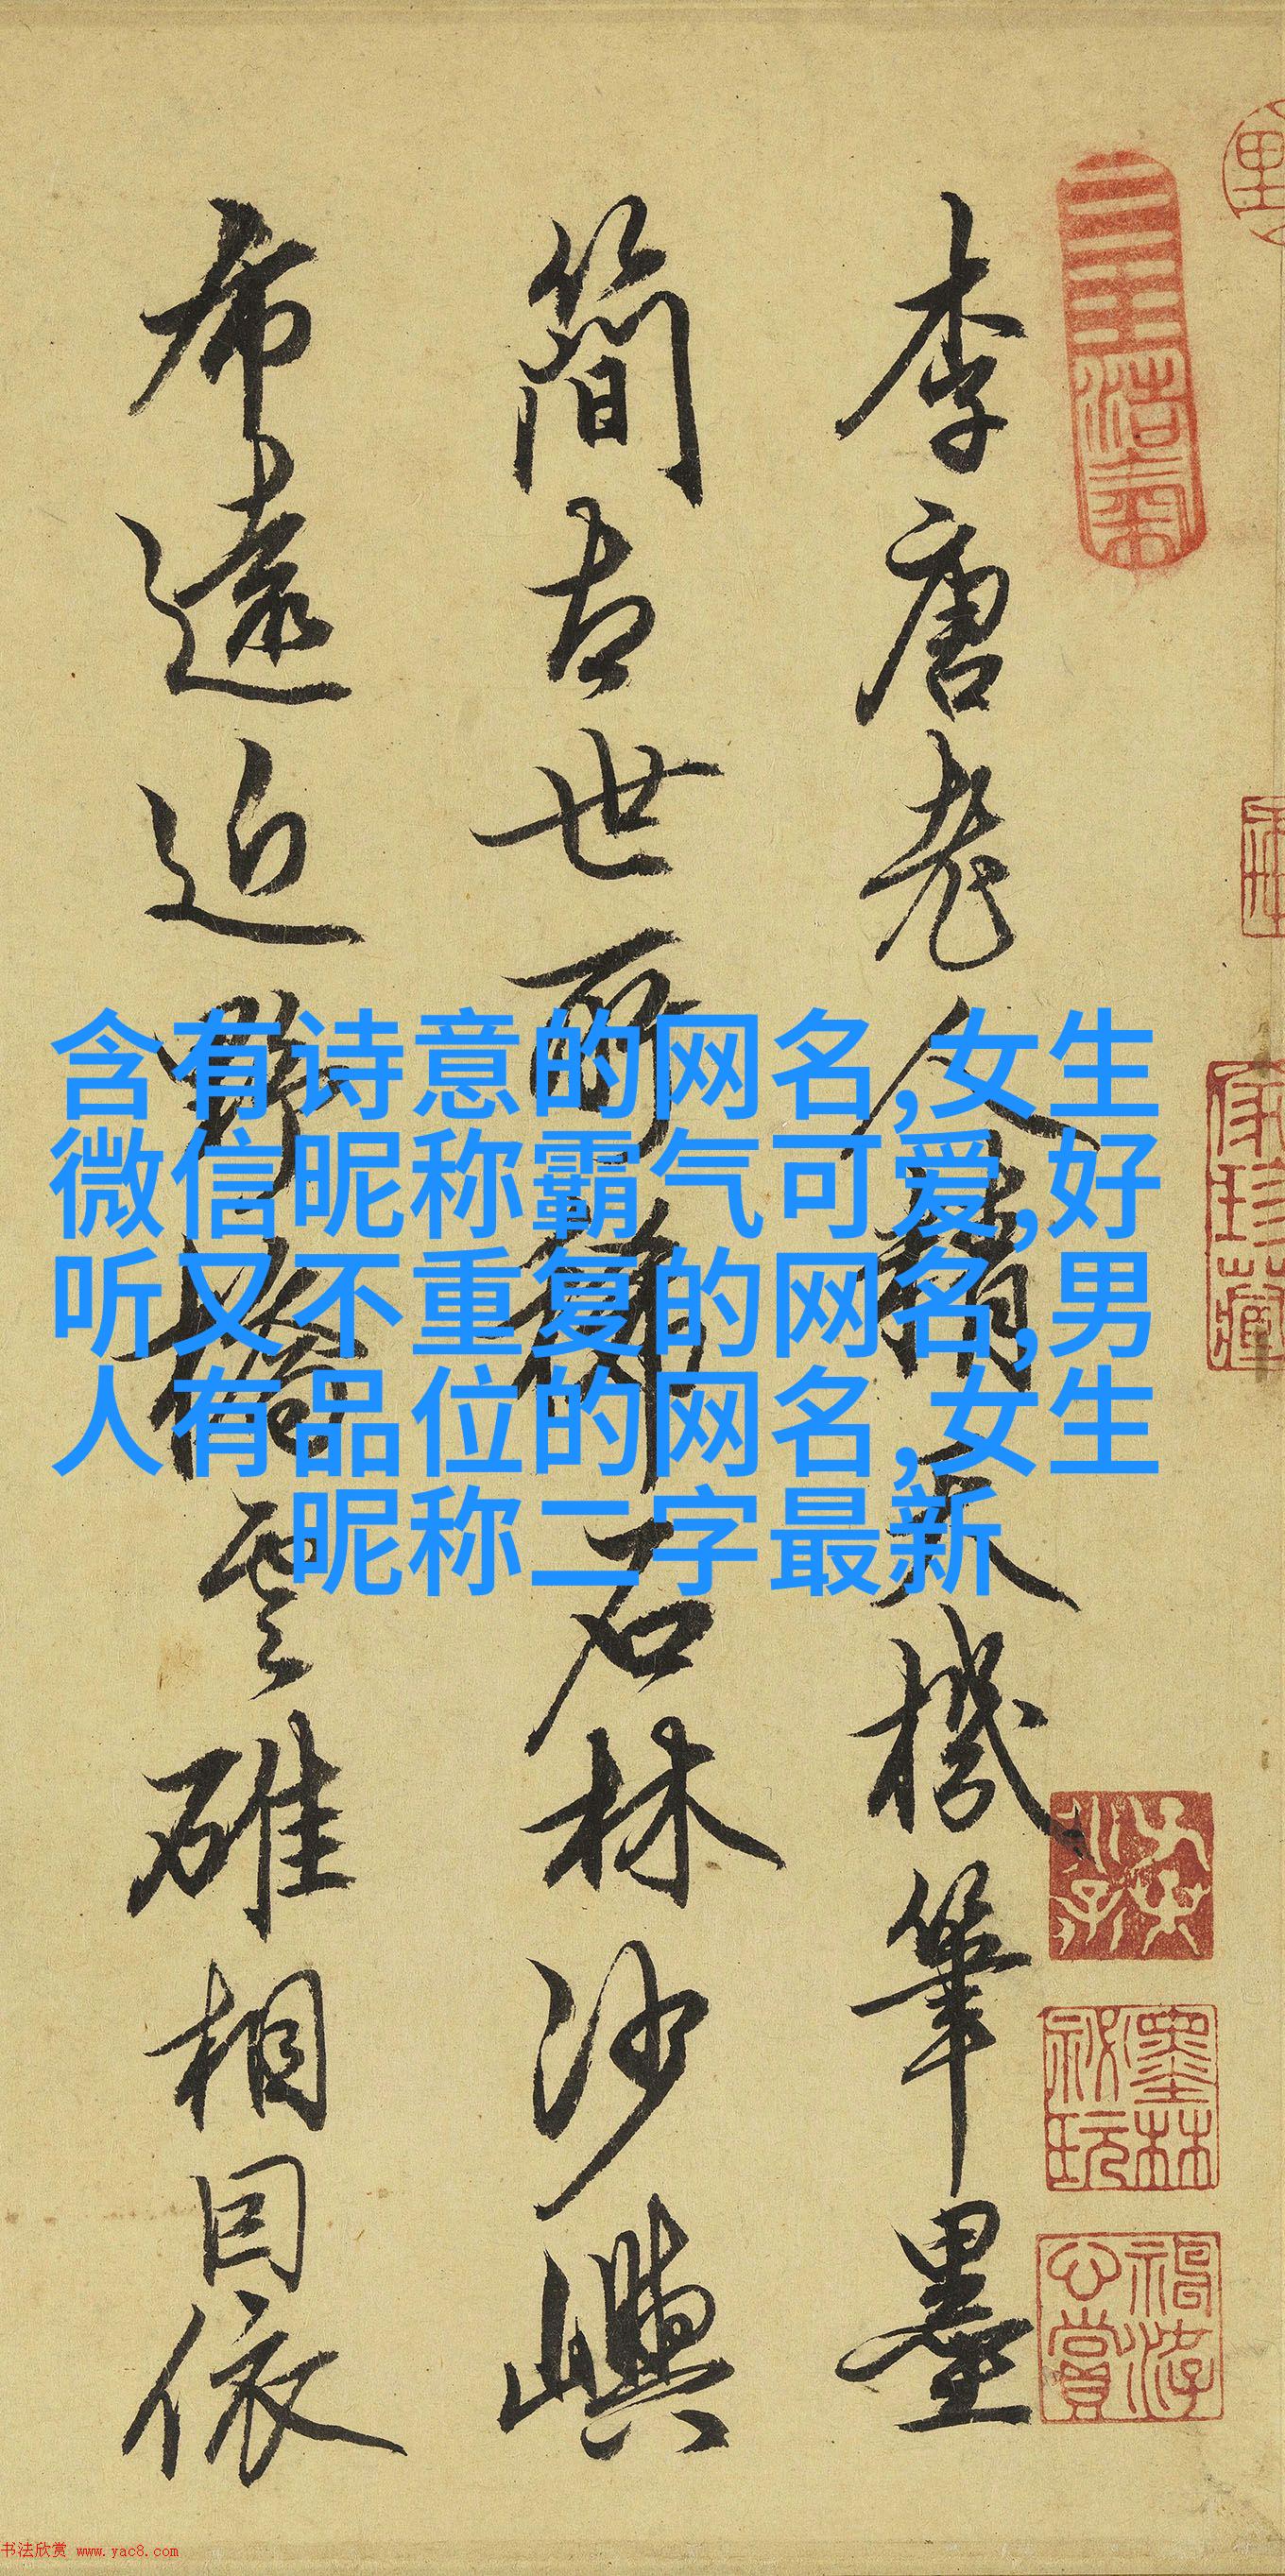 李唐老人精天機筆墨
簡古世所稱石林沙嶼
布遠近野橋雲碓相因依
含有诗意的网名,女生
微信昵称霸气可爱,好
听又不重复的网名,男
人有品位的网名,女生
昵称二字最新
墨林祕玩
书法欣赏 www.yac8.com